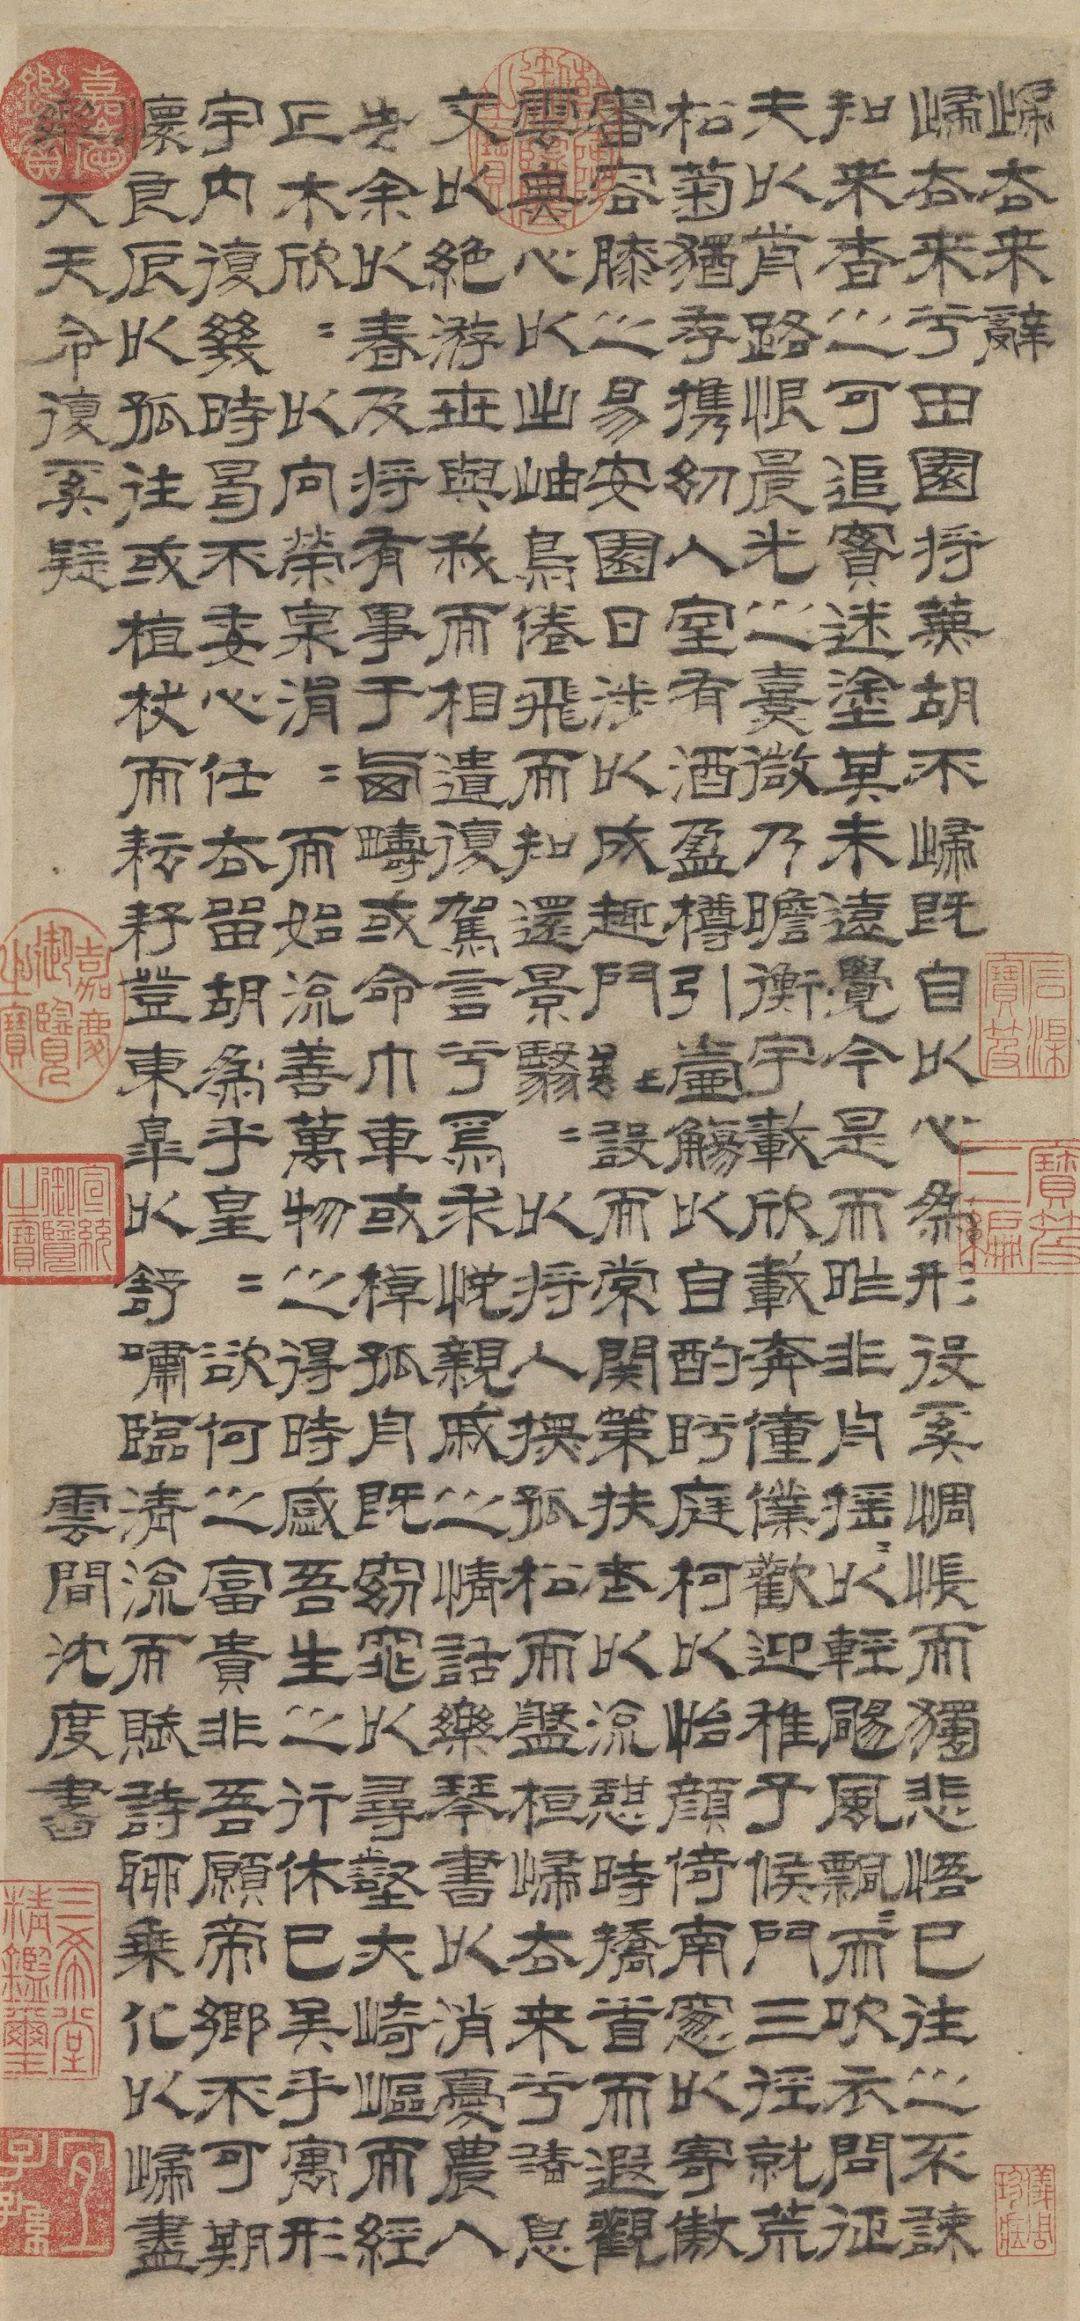 歸去来辭
歸去来兮田園将蕪胡不歸既自以心為形役奚惆悵而獨悲悟已往之不諫
知来者之可追實迷塗其未遠覺今是而昨非舟揺〻以輕颺風飄〻而吹衣問征
夫以前路恨晨光之熹微乃瞻衡宇載欣載奔僮僕歡迎稚子候門三徑就荒
松菊猶存携幼入室有酒盈樽引壺觴以自酌眄庭柯以怡顏倚南窓以寄傲
審容膝之易安園日涉以成趣門雖設而常關策扶老以流憩時矯首而遐觀
雲無心以出岫鳥倦飛而知還景翳〻以将入撫孤松而盤桓歸去来兮請息
交以絶游世與我而相遺復駕言兮焉求悅親戚之情話樂琴書以消憂農人
告余以春及将有事于西疇或命巾車或棹孤舟既窈窕以尋壑亦崎嶇而經
丘木欣〻以向榮泉涓〻而始流善萬物之得時感吾生之行休已矣乎寓形
宇内復幾時曷不委心任去留胡為乎皇〻欲何之富貴非吾願帝鄉不可期
懷良辰以孤往或植杖而耘耔登東皐以舒嘯臨清流而賦詩聊乗化以歸盡
樂夫天命復奚疑
雲間沈度書
石渠寶笈
寶笈三編
儀周珍藏
乾隆御覽之寶
嘉慶鑑賞
嘉慶御覽之寶
宣統御覽之寶
三希堂精鑑璽
宜子孫